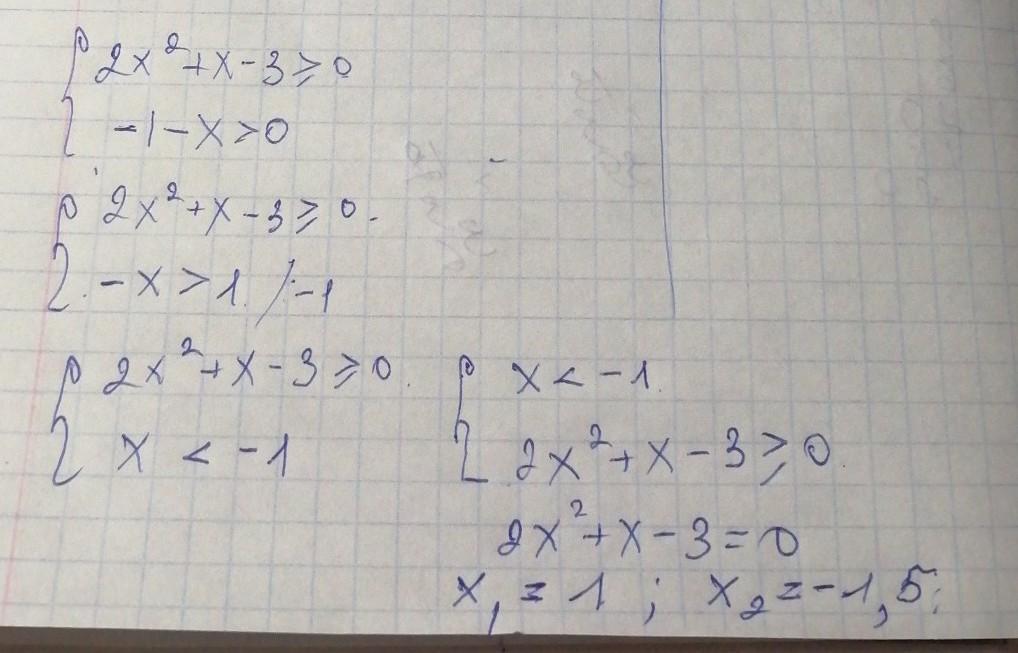 { 2x² + x - 3 ⩾ 0
-1 - x > 0
{ 2x² + x - 3 ⩾ 0.
-x > 1. /·-1
{ 2x² + x - 3 ⩾ 0.
x < -1
{ x < -1.
2x² + x - 3 ⩾ 0.
2x² + x - 3 = 0
x₁ = 1 ; x₂ = -1,5;